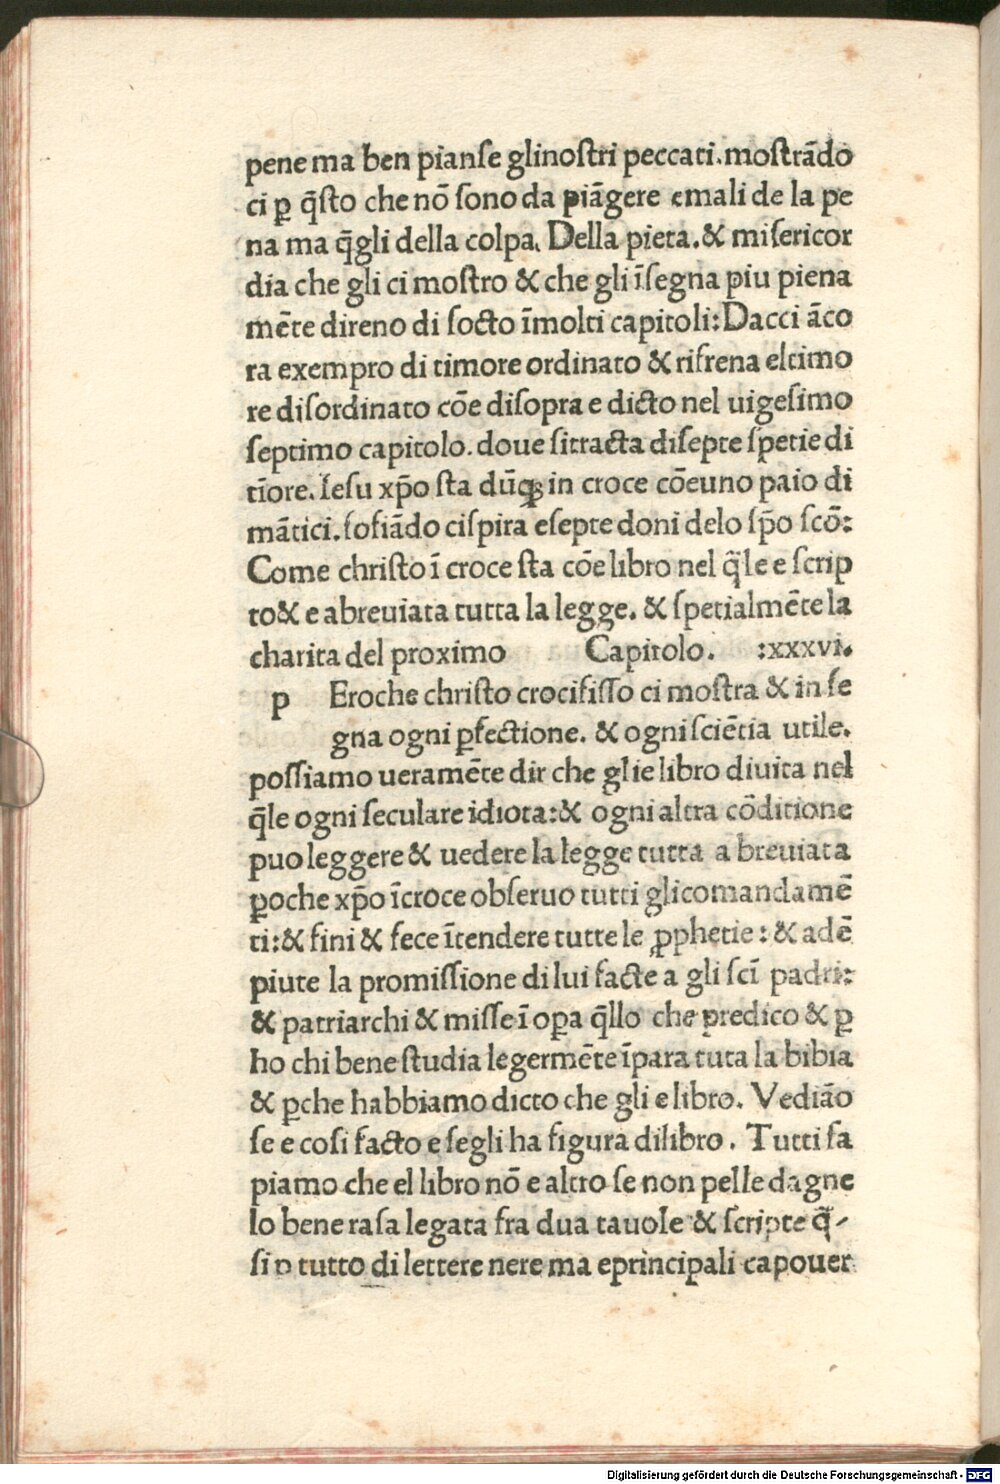 pene ma ben pianſe glinoſtri peccati.moſtrādo
ci ꝑ q̄ſto che nō ſono da piāgere emali de la pe
na ma q̄gli della colpa. Della pieta.& miſericor
dia che gli ci moſtro & che gli īſegna piu piena
mēte direno di ſocto īmolti capitoli:Dacci āco
ra exempro di timore ordinato & rifrena eltimo
re diſordinato cōe diſopra e dicto nel uigeſimo
ſeptimo capitolo. doue ſitracta diſepte ſpetie di
tīore. Ieſu xp̄o ſta dūqꝫ in croce cōeuno paio di
mātici. ſofiādo ciſpira eſepte doni delo ſp̄o ſcō:
Come chriſto ī croce ſta cōe libro nel q̄le e ſcrip
to& e abreuiata tutta la legge. & ſpetialmēte la
charita del proximo Capitolo. :xxxvi.
p Eroche chriſto crocifiſſo ci moſtra & in ſe
gna ogni ꝑfectione. & ogni ſciētia utile.
poſſiamo ueramēte dir che gl ie libro diuita nel
q̄le ogni ſeculare idiota:& ogni altra cōditione
puo leggere & uedere la legge tutta a breuiata
ꝑoche xp̄o īcroce obſeruo tutti glicomandamē
ti:& fini & fece ītendere tutte le ꝓphetie : & adē
piute la promiſſione di lui facte a gli ſcī padri:
& patriarchi & miſſe ī oꝑa q̄llo che predico & ꝑ
ho chi bene ſtudia legermēte īpara tuta la bibia
& ꝑche habbiamo dicto che gli e libro. Vediāo
ſe e coſi facto e ſegli ha figura dilibro. Tutti ſa
piamo che el libro nō e altro ſe non pelle dagne
lo bene raſa legata fra dua tauole & ſcripte q̄-
ſi ꝑ tutto di lettere nere ma eprincipali capouer
Digitalisierung gefördert durch die Deutsche Forschungsgemeinschaft - DFG